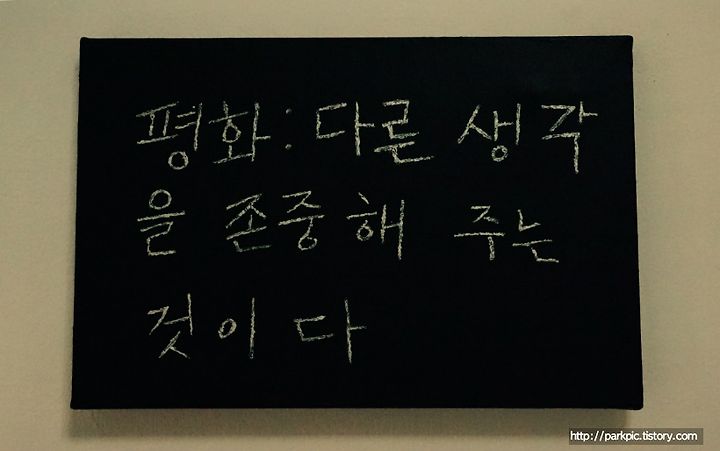 평화: 다른 생각
을 존중해 주는
것이다
http://parkpic.tistory.com